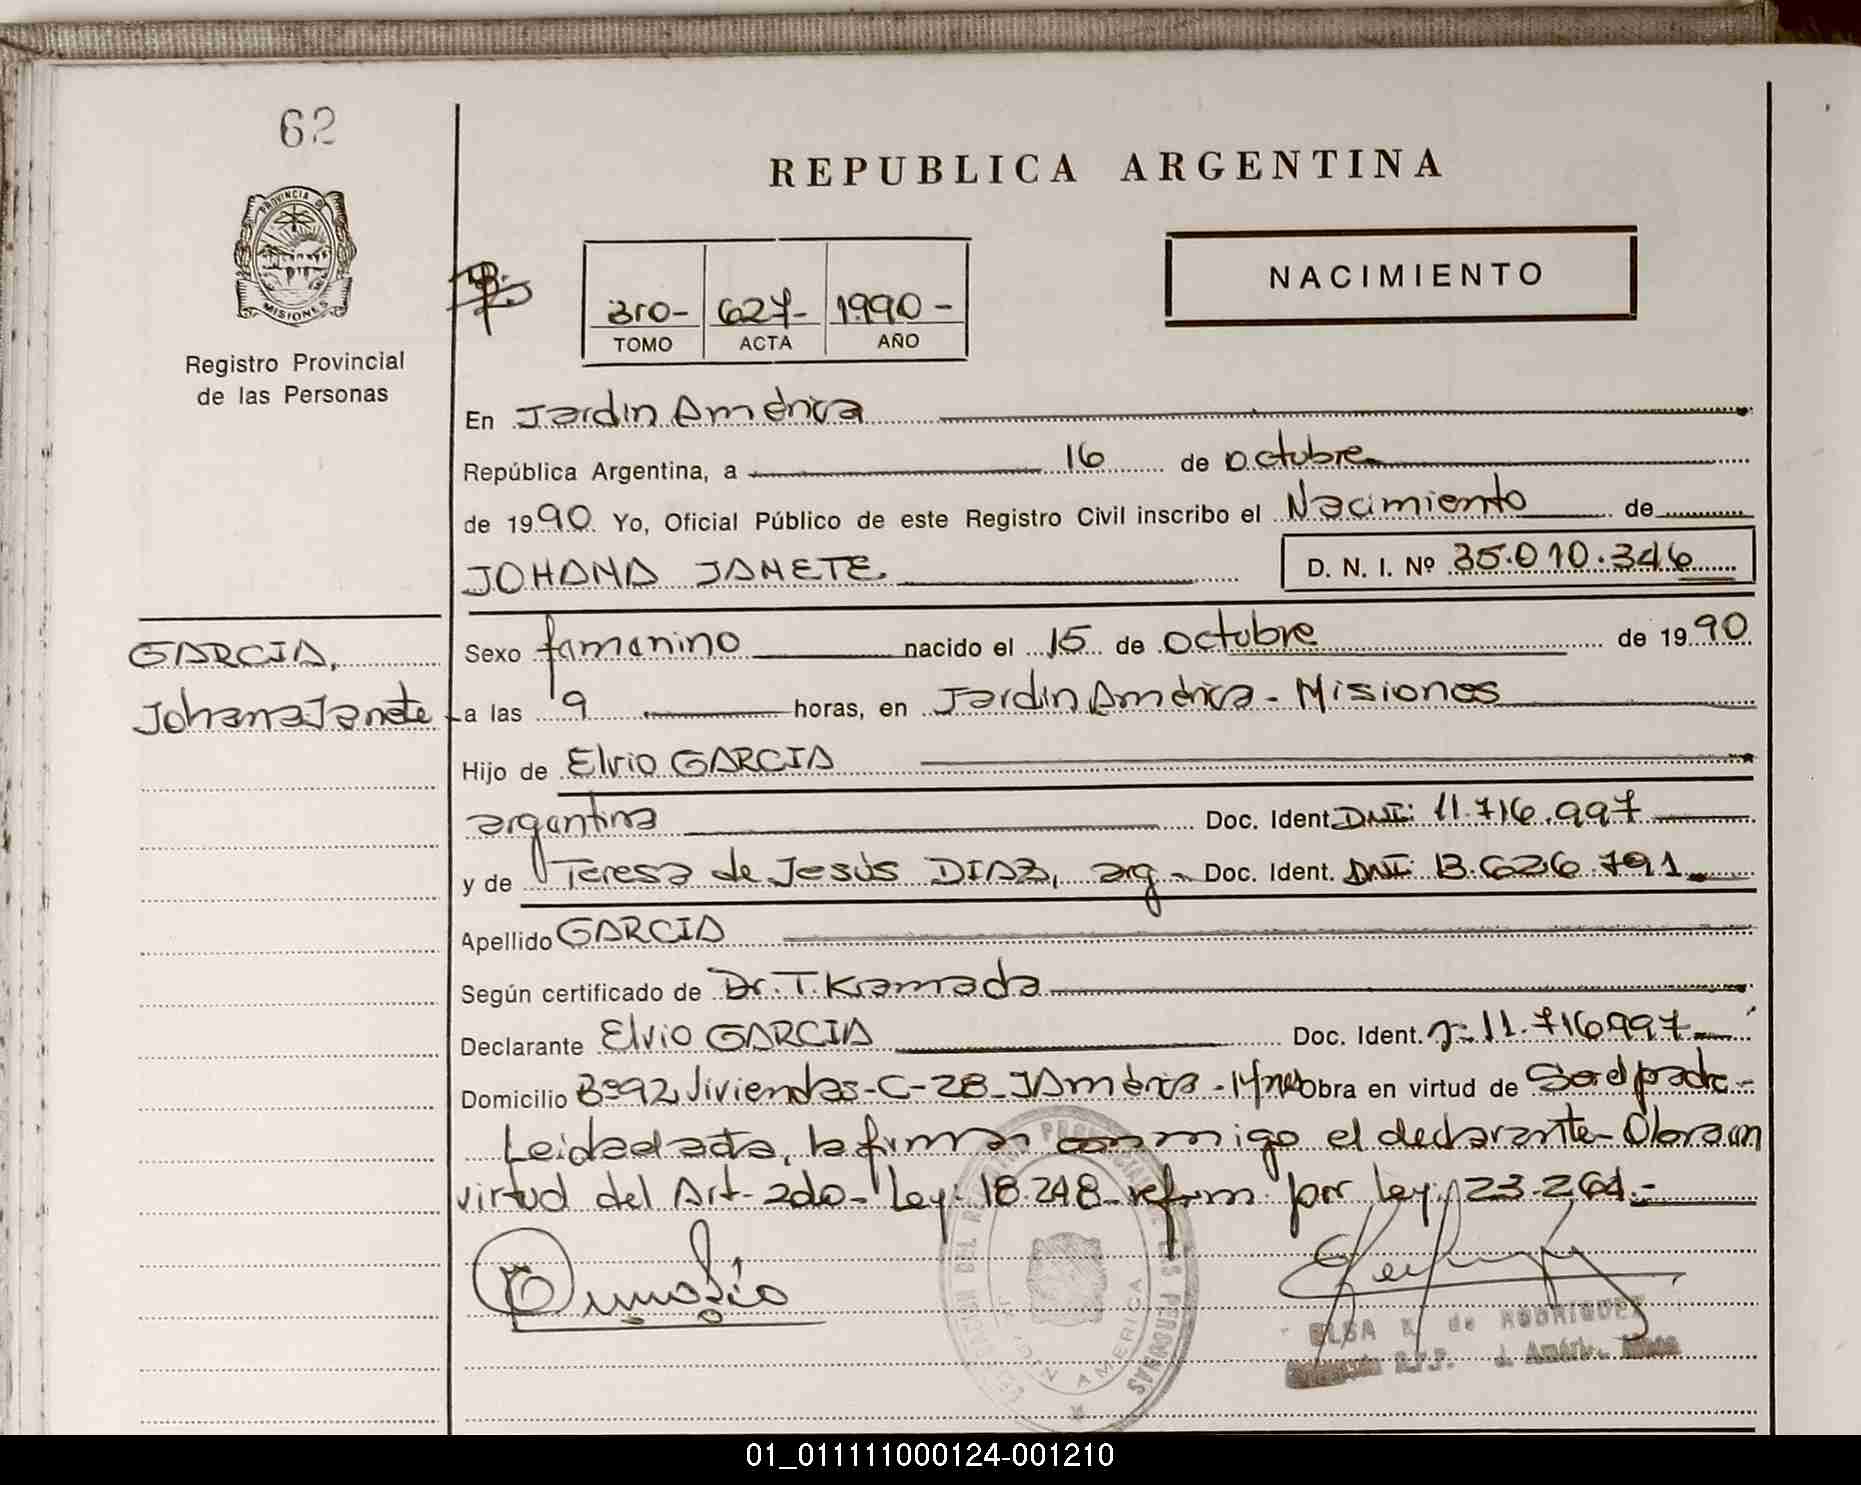 62
REPUBLICA ARGENTINA
PROVINCIA DE
MISIONES
Registro Provincial
de las Personas
NACIMIENTO
3ro- 627- 1990-
TOMO ACTA AÑO
En Jardin América
República Argentina, a 16 de octubre
de 1990 Yo, Oficial Público de este Registro Civil inscribo el Nacimiento de
JOHANA JANETE
D. N. I. Nº 35.010.346
GARCIA,
Johana Janete
Sexo femenino nacido el 15 de octubre de 1990
a las 9 horas, en Jardin América - Misiones
Hijo de Elvio GARCIA
argentina Doc. Ident. DNI: 11.716.997
y de Teresa de Jesús DIAZ, arg- Doc. Ident. DNI: 13.626.791
Apellido GARCIA
Según certificado de Dr. T. Kramada
Declarante Elvio GARCIA Doc. Ident. 11.716997
Domicilio Bº 92 Viviendas-C-28- J América - Mnes Obra en virtud de Ser el padre-
Leida el acta, la firma conmigo el declarante- Obra en
virtud del Art- 2do- Ley: 18.248- reform por ley: 23.264.-
JARDIN AMERICA
ELSA K. de RODRIGUEZ
R.P.P. J. América, Mnes
01_011111000124-001210